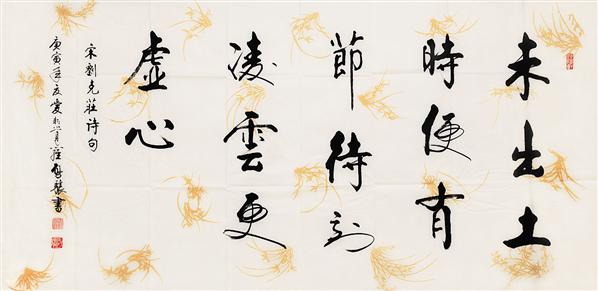 未出土
時便有
節待到
凌雲更
虚心
宋劉克莊诗句
庚寅年夏書